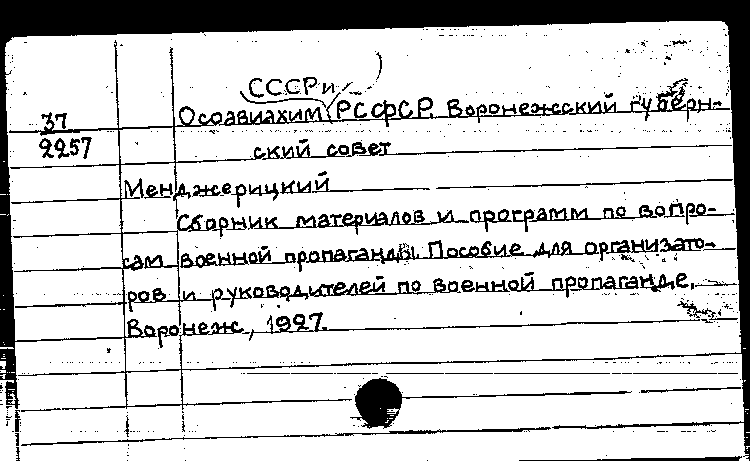 СССР и
37 Осоавиахим РСФСР. Воронежсский губерн-
2257 ский совет
Менджерицкий
Сборник материалов и программ по вопро-
сам военной пропаганды. Пособие для организато-
ров и руководителей по военной пропаганде.
Воронеж, 1927.